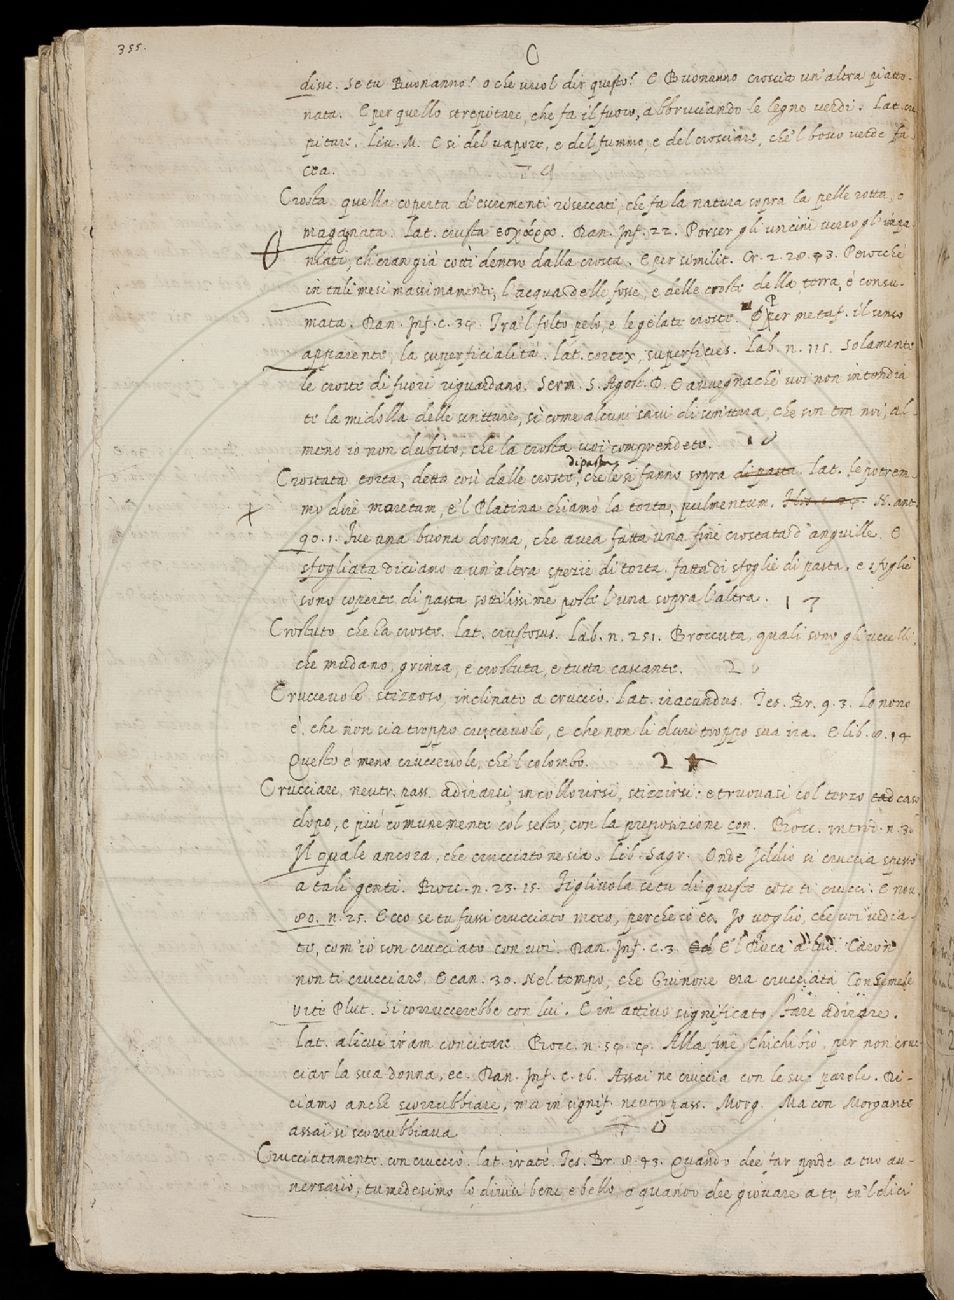 355.
C
disse. Se tu Buonanno? o che vuol dir questo? E Buonanno crosciò un'altra piatto-
nata. E per quello strepitare, che fa il fuoco, abbruciando le legne verdi. Lat. cre
pitare. Liv. M. E sì del vapore, e del fummo, e del crosciare, che 'l bosco verde fa-
cea.
Crosta quella coperta d'escrementi riseccati, che fa la natura sopra la pelle rotta, o
magagnata. Lat. crusta ἐσχάρα. Dan. Inf. 22. Porser gli uncini verso gl'impa
niati, ch'eran già cotti dentro dalla crosta. E per similit. Cr. 2. 28. 43. Perocchè
in tali mesi massimamente, l'acqua delle fosse, e delle croste della terra, è consu-
mata. Dan. Inf. c. 34. Tra 'l folto pelo, e le gelate croste. Per metaf. il senso
apparente, la superficialità. Lat. cortex, superficies. Lab. n. 115. Solamente
le croste di fuori riguardano. Serm. S. Agost. D. E avvegnachè voi non intendia
te la midolla delle scritture, sì come alcuni savi di scrittura, che son tra noi, al-
meno io non dubito, che la crosta voi comprendete. 10
Crostata torta, detta così dalle croste di pasta, che le si fanno sopra di pasta. Lat. le potrem-
mo dire moretum, e 'l Platina chiamò la torta, pulmentum. N. ant.
90. 1. Fue una buona donna, che avea fatta una fine crostata d'anguille. E
sfogliata diciamo a un'altra spezie di torta fatta di sfoglie di pasta. e sfoglie
sono coperte di pasta sottilissime poste l'una sopra l'altra. 13
Crostuto che ha croste. Lat. crustosus. Lab. n. 251. Broccuta, quali sono gli uccelli,
che mudano, grinza, e crostuta, e tutta cascante. 20
Cruccevole stizzoso, inclinato a cruccio. Lat. iracundus. Tes. Br. 9. 3. Lo nono
è, che non sia troppo cruccevole, e che non li duri troppo sua ira. E lib. 14
Questo è meno cruccevole, che 'l colombo. 2
Crucciare, neutr. pass. adirarsi, incollorirsi, stizzirsi: e truovasi col terzo caso
dopo, e più comunemente col sesto, con la preposizione con. Bocc. introd. n. 30
Il quale ancora, che crucciato ne sia. Lib. Sagr. Onde Iddio si cruccia spesso
a tali genti. Bocc. n. 23. 15. Figliuola se tu di queste cose ti crucci. E nov.
80. n. 25. Ecco se tu fussi crucciato meco, perchè io ec. Io voglio, che voi vedia-
te, com'io son crucciato con voi. Dan. Inf. c. 3. E 'l Duca a lui: Caron
non ti crucciare. E can. 30. Nel tempo, che Giunone era crucciata Con Semele
vite Plut. Si corruccerebbe con lui. E in attivo significato, fare adirare.
Lat. alicui iram concitare. Bocc. n. 54. 4. Alla fine Chichibio, per non cruc-
ciar la sua donna, ec. Dan. Inf. c. 16. Assai ne cruccia con le sue parole. Di-
ciamo anche scorrubbiare, ma in signif. neutro pass. Morg. Ma con Morgante
assai si scorrubbiava
Crucciatamente. con cruccio. lat. iratè. Tes. Br. 8. 43. Quando dee far prode a tuo av-
versario, tu medesimo lo divisi bene, e bello, e quando dee giovare a te, tu 'l dici